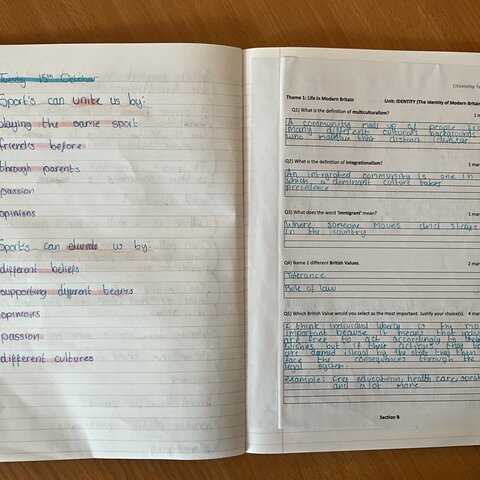 Tuesday 15th October
Sport's can unite us by:
playing the same sport
friends before
through parents
passion
opinions
Sports can divide us by:
different beliefs
supporting different teams
opinions
passion
different cultures
Citizenship Te
Theme 1: Life in Modern Britain Unit: IDENTITY (The Identity of Modern Britain
Q1) What is the definition of multiculturalism? 1 m
A community made up of people from
Many different cultural backgrounds
who maintain their distinct
Q2) What is the definition of integrationalism? 1 mar
An integrated community is one in
which a dominant culture takes
precedence
Q3) What does the word 'immigrant' mean? 1 mar
Where someone moves and stays
in the country
Q4) Name 2 different British Values. 2 mar
Tolerance
Rule of law
Q5) Which British Value would you select as the most important. Justify your choice(s). 4 mar
I think individial liberty is the mo
important because it means that indiv
are free to act accordingly to their
wishes but if their actions they
are demed illegal by the state they then
face the consequences through the
legal system.
examples: free education, health care, spe
and a lot more
Section B